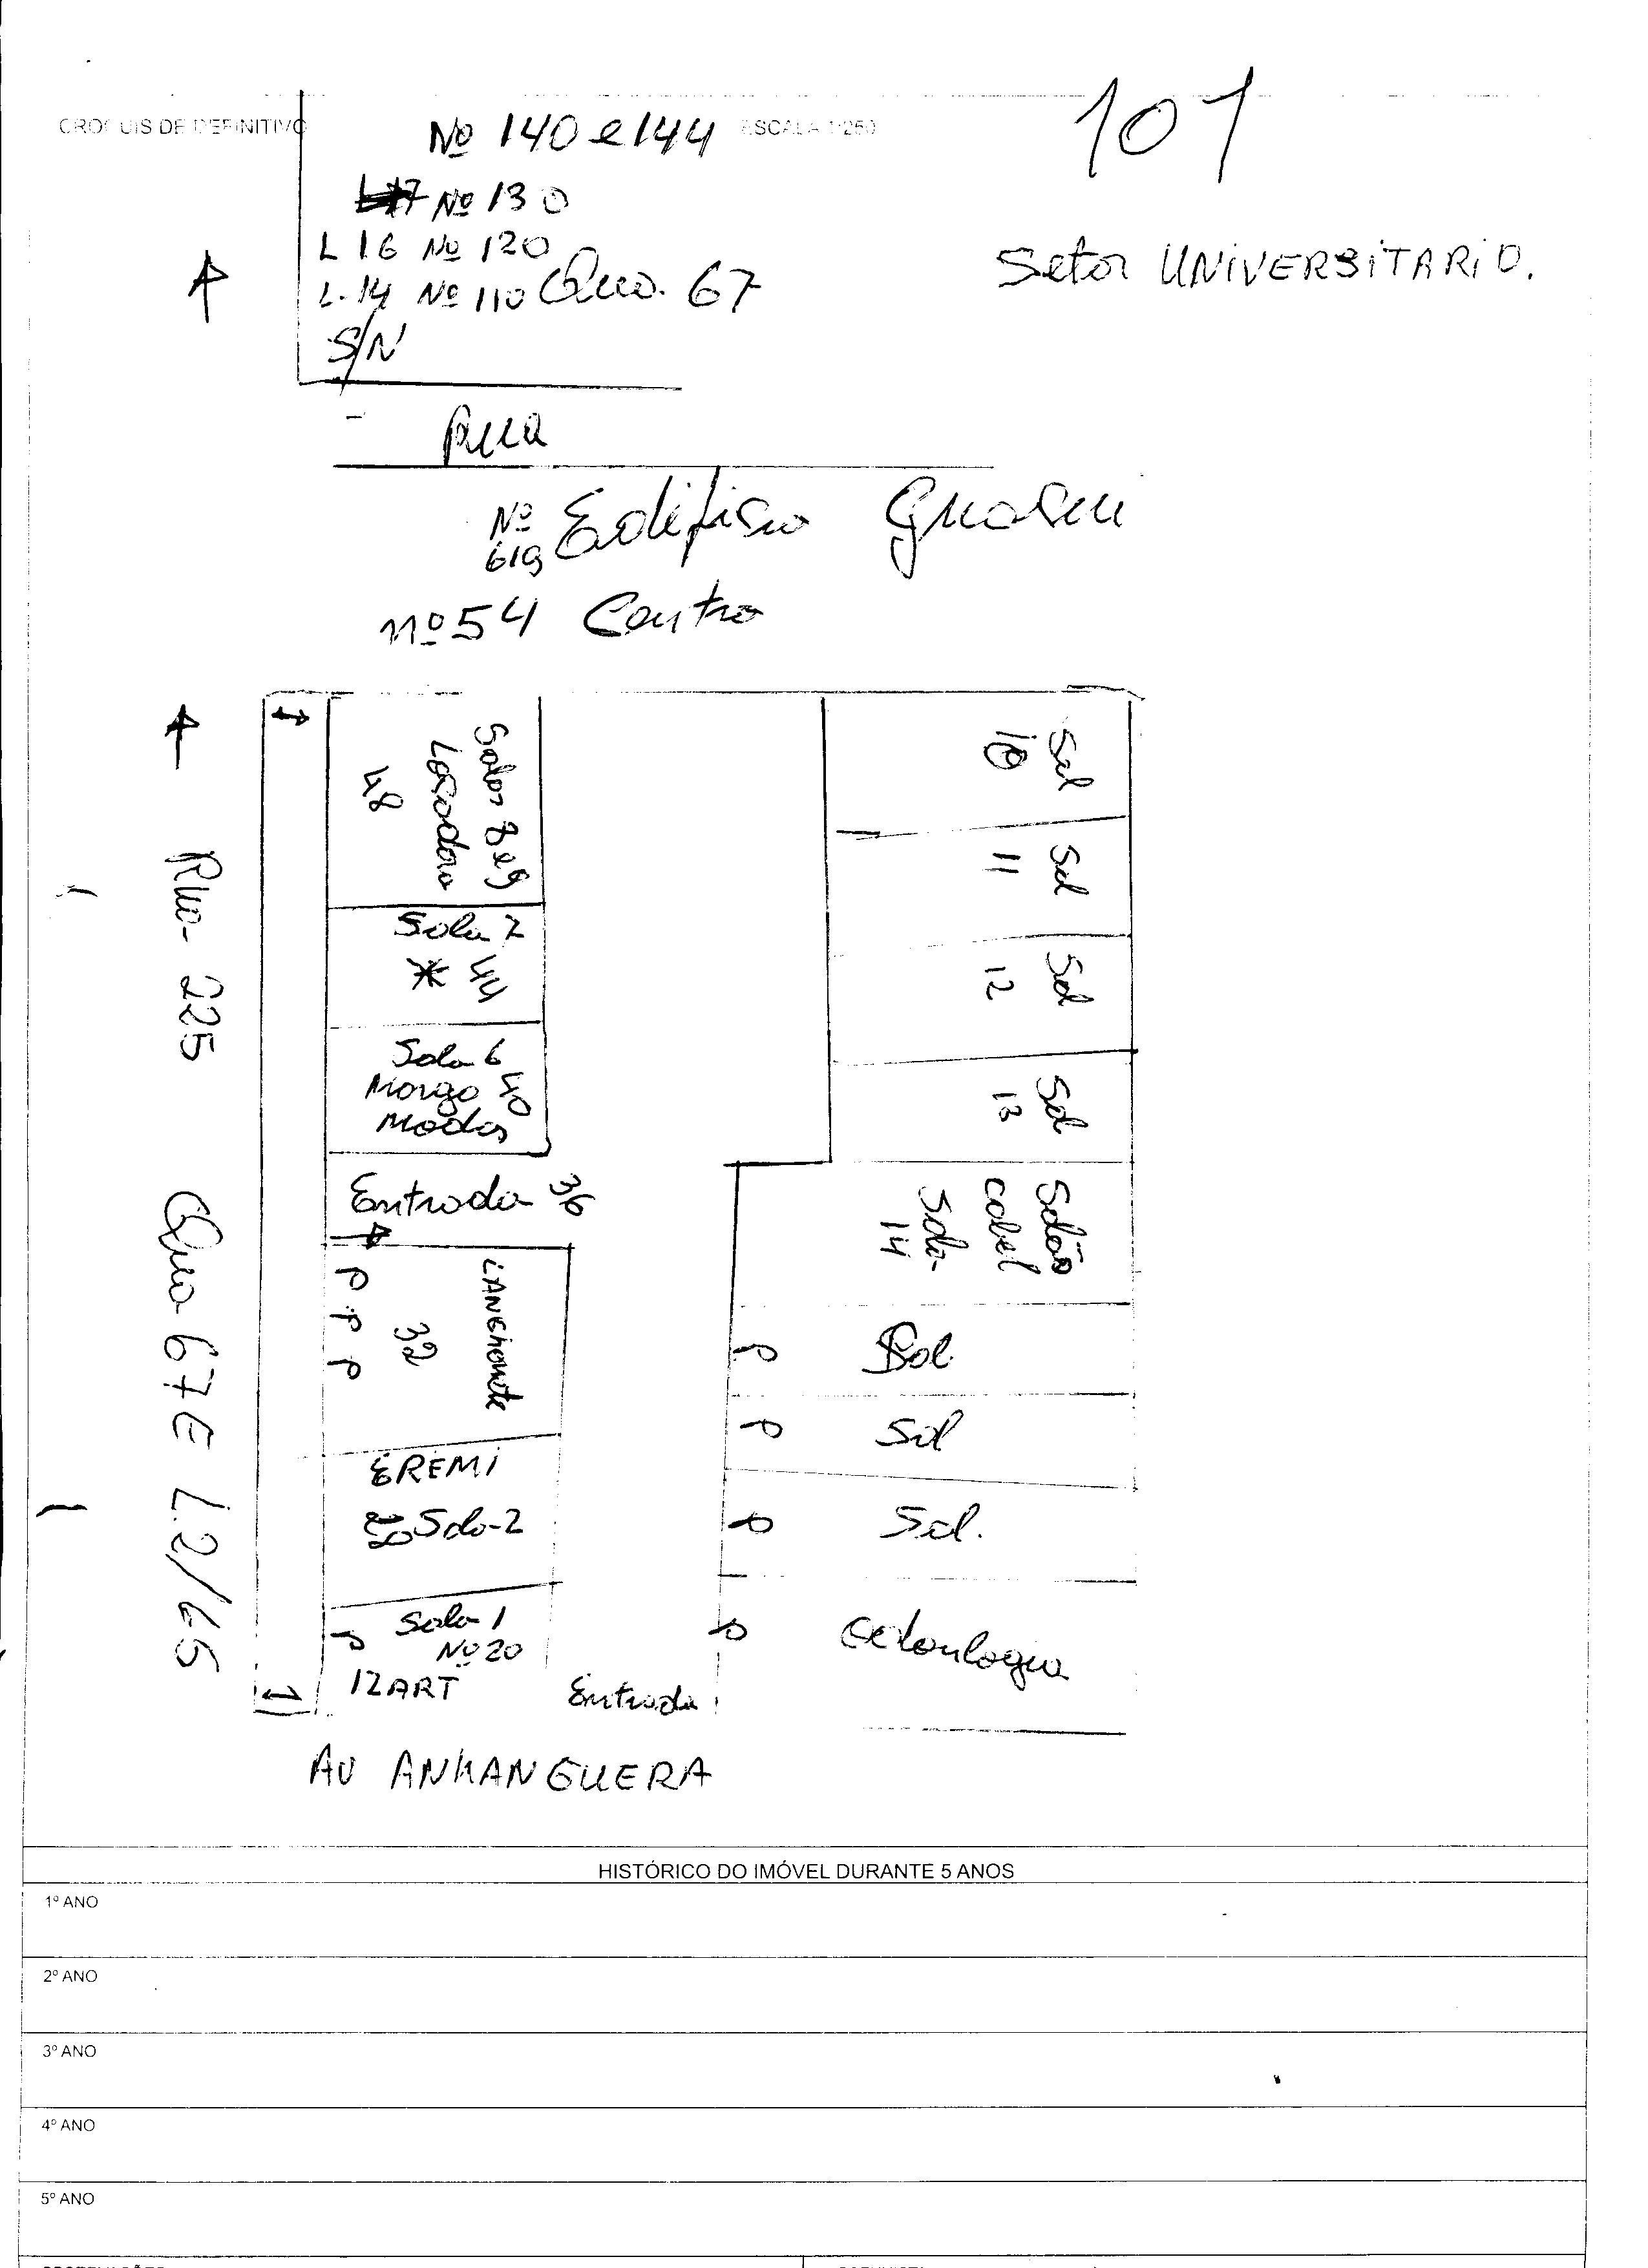 CROQUIS DE DEFINITIVO
ESCALA 1:250
101
Nº 140 e 144
Nº 130
L 16 Nº 120
L.14 Nº 110 Qua. 67
S/N
Setor UNIVERSITARIO.
Rua
Nº 619 Edifisio
nº 54 Centro
Rua- 225 Qua 67E L.2/65
Salas 8 e 9
Locadora
48
Sala 7
44
Sala 6
40
Modas
Entrada 36
LANCHONETE
32
P
P
P
EREMI
Sala-2
Sala-1
Nº 20
IZART
Entrada
Sal
10
Sal
11
Sal
12
Sal
13
Salão
Sala-
14
Sal.
Sal
Sal.
AV ANHANGUERA
HISTÓRICO DO IMÓVEL DURANTE 5 ANOS
1º ANO
2º ANO
3º ANO
4º ANO
5º ANO